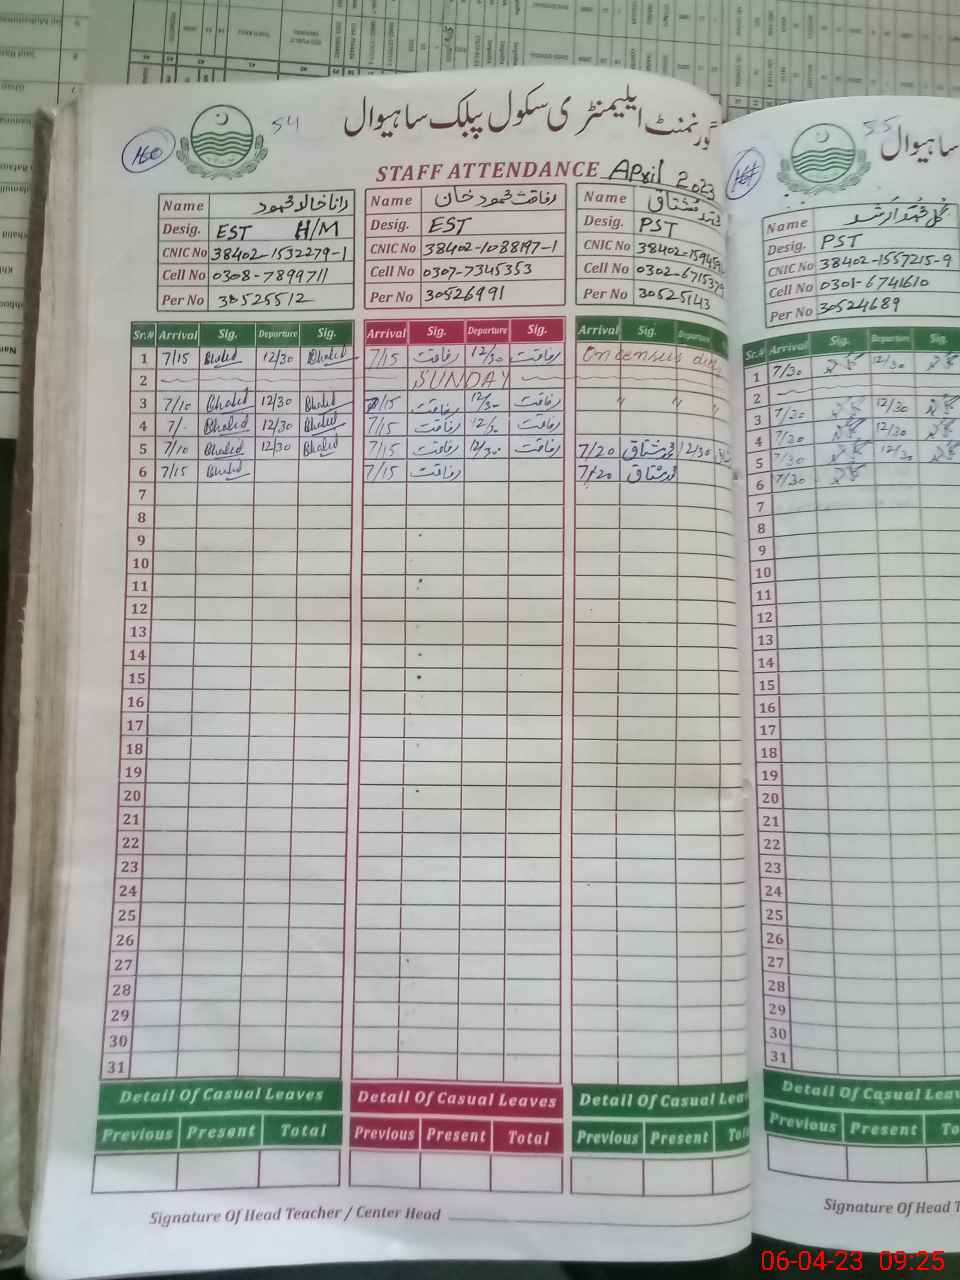 160
54
گورنمنٹ ایلیمنٹری سکول پبلک ساہیوال
STAFF ATTENDANCE April 2023
Name رانا خالد محمود
Desig. EST H/M
CNIC No 38402-1532279-1
Cell No 0308-7899711
Per No 30525512
Name رفاقت محمود خان
Desig. EST
CNIC No 38402-1088197-1
Cell No 0307-7345353
Per No 30526991
Name محمد مشتاق
Desig. PST
CNIC No 38402-159459
Cell No 0302-6715379
Per No 30525143
Sr.# Arrival Sig. Departure Sig. Arrival Sig. Departure Sig. Arrival Sig. Departure
1 7/15 Khalid 12/30 Khalid 7/15 رفاقت 12/30 رفاقت On census duty
2 SUNDAY
3 7/10 Khalid 12/30 Khalid 7/15 رفاقت 12/30 رفاقت " " "
4 7/- Khalid 12/30 Khalid 7/15 رفاقت 12/30 رفاقت
5 7/10 Khalid 12/30 Khalid 7/15 رفاقت 12/30 رفاقت 7/20 محمد مشتاق 12/30
6 7/15 Khalid 7/15 رفاقت 7/20 محمد مشتاق
7
8
9
10
11
12
13
14
15
16
17
18
19
20
21
22
23
24
25
26
27
28
29
30
31
Detail Of Casual Leaves Detail Of Casual Leaves Detail Of Casual Lea
Previous Present Total Previous Present Total Previous Present Tot
Signature Of Head Teacher / Center Head
55
ساہیوال
Name
Desig. PST
CNIC No 38402-1557215-9
Cell No 0301-6741610
Per No 30524689
Sr.# Arrival Sig. Departure Sig.
1 7/30 12/30
2
3 7/30 12/30
4 7/20 12/30
5 7/30 12/30
6 7/30
7
8
9
10
11
12
13
14
15
16
17
18
19
20
21
22
23
24
25
26
27
28
29
30
31
Detail Of Casual Leav
Previous Present To
Signature Of Head T
06-04-23 09:25